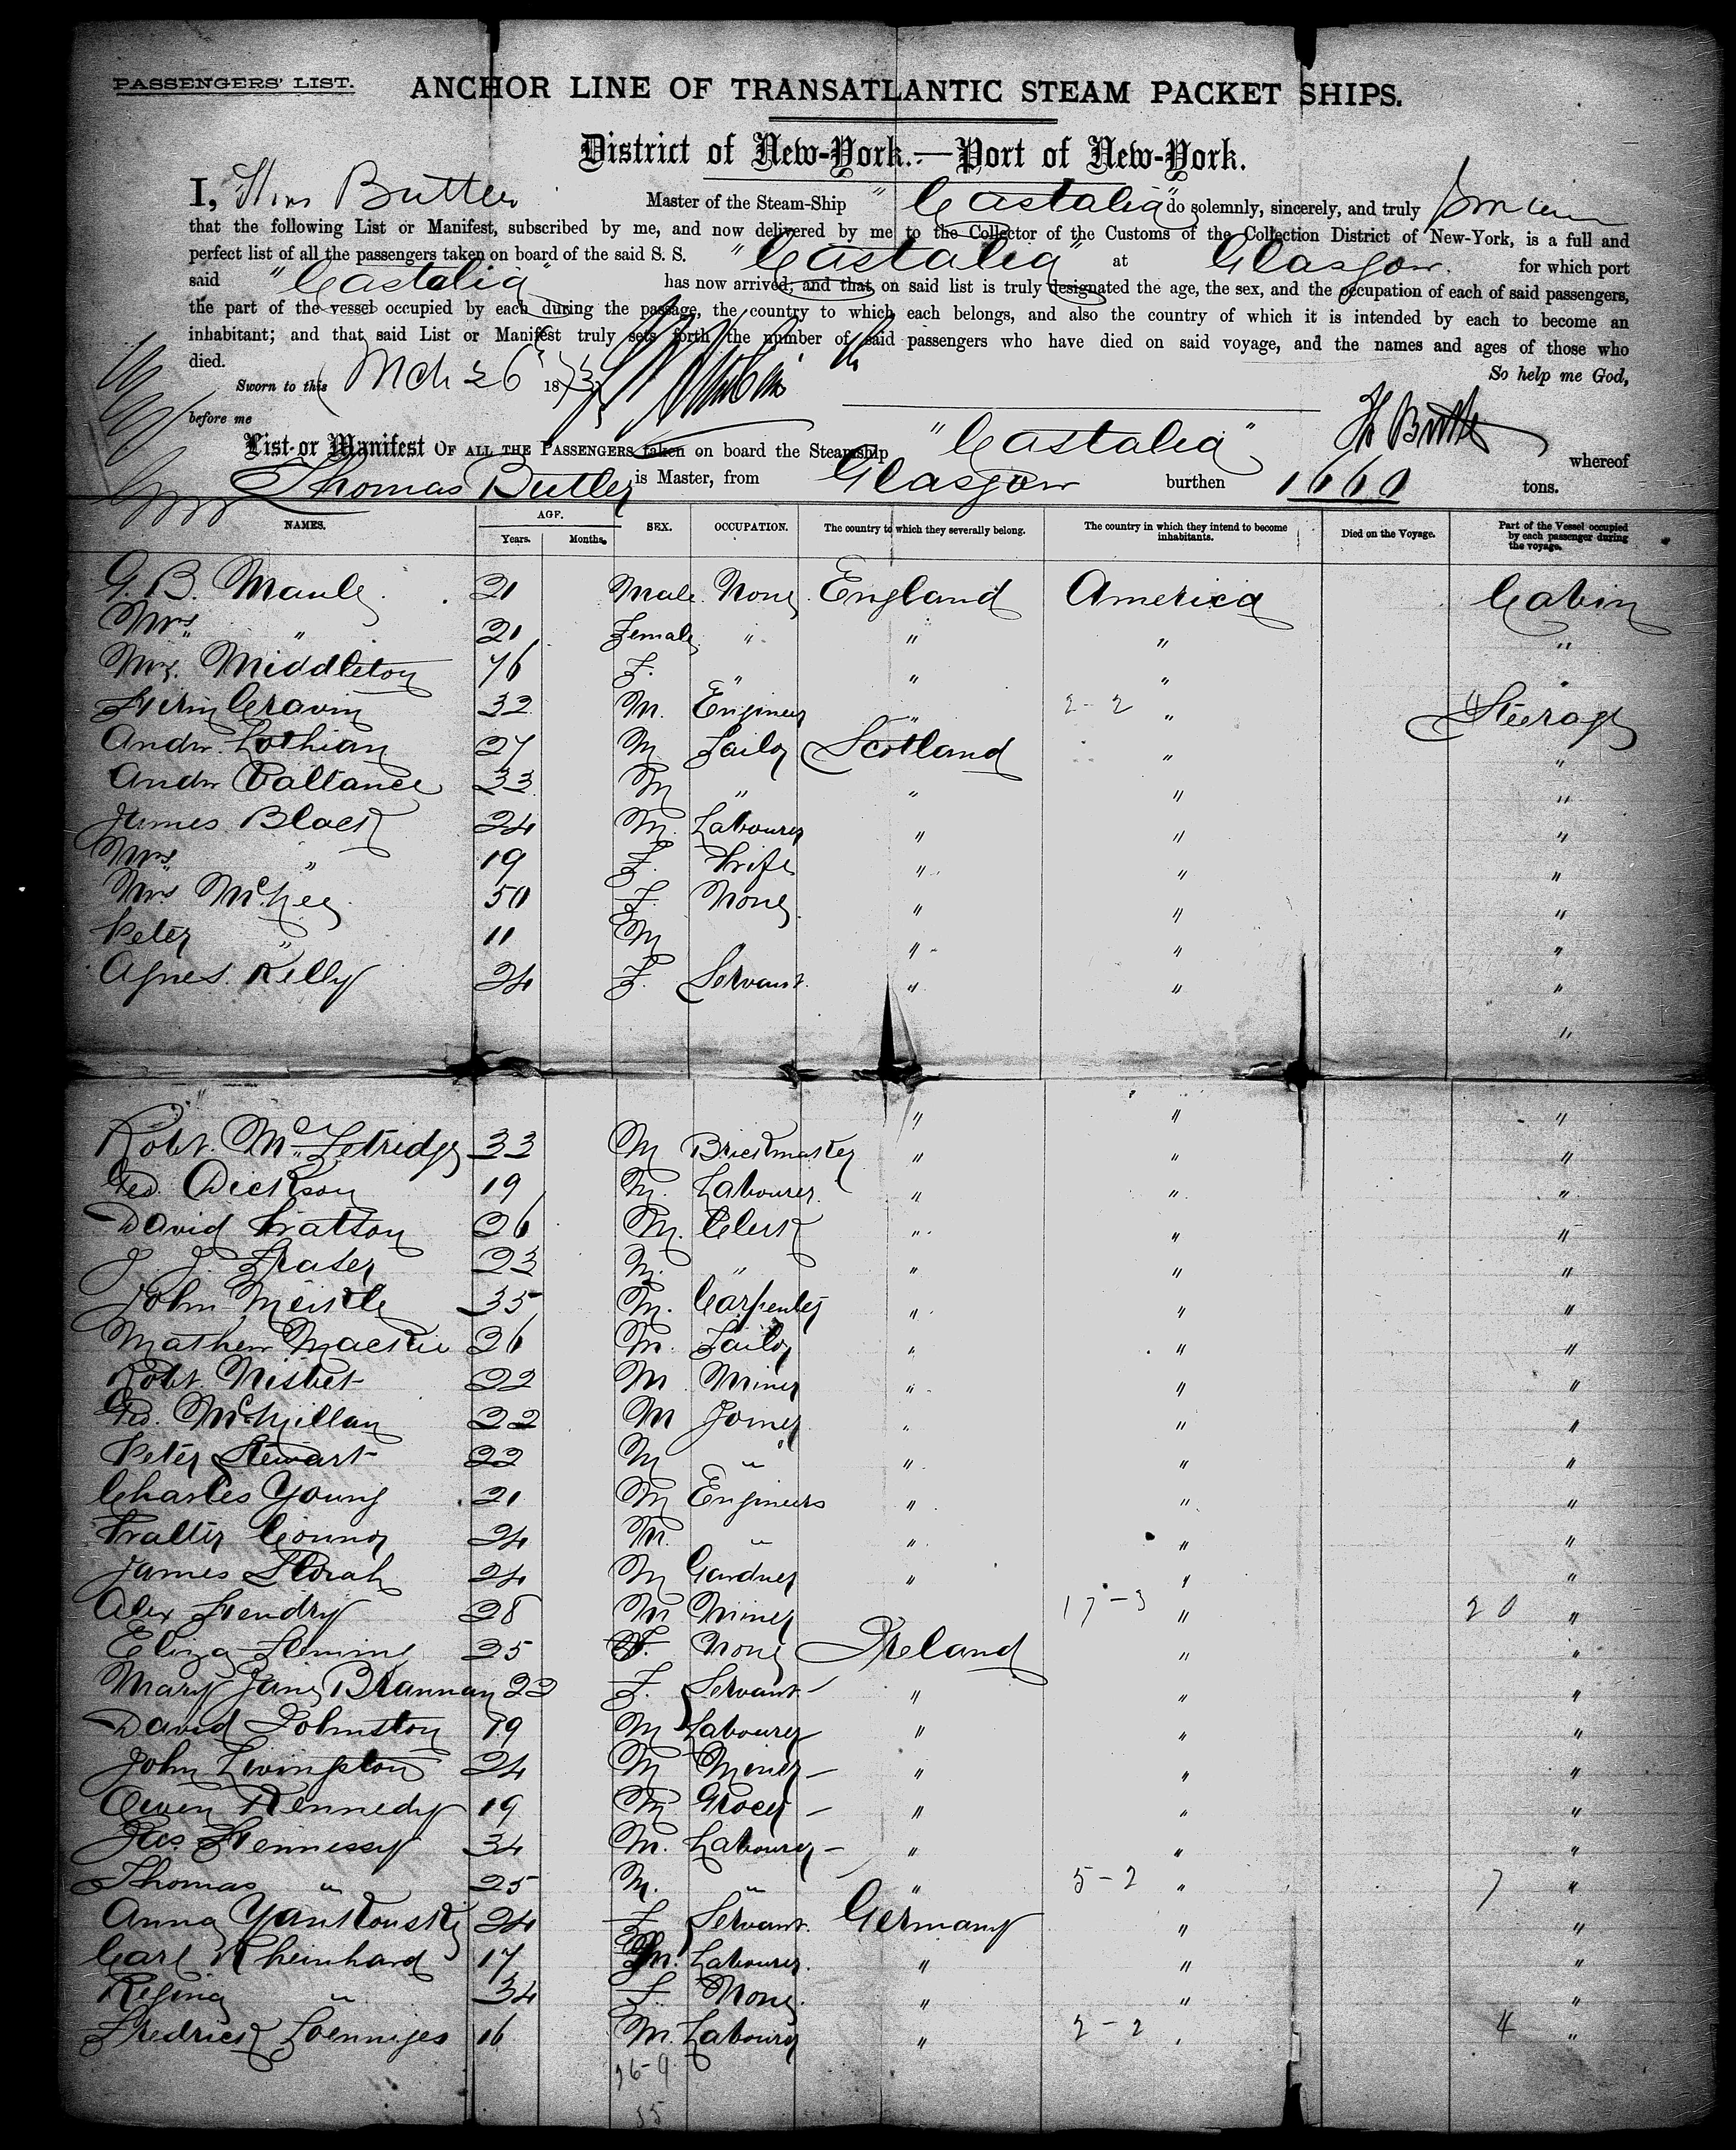 PASSENGERS' LIST.
ANCHOR LINE OF TRANSATLANTIC STEAM PACKET SHIPS.
District of New-York.—Port of New-York.
I, Thos Butler Master of the Steam-Ship "Castalia" do solemnly, sincerely, and truly
that the following List or Manifest, subscribed by me, and now delivered by me to the Collector of the Customs of the Collection District of New-York, is a full and
perfect list of all the passengers taken on board of the said S. S. "Castalia" at Glasgow. for which port
said "Castalia" has now arrived; and that on said list is truly designated the age, the sex, and the occupation of each of said passengers,
the part of the vessel occupied by each during the passage, the country to which each belongs, and also the country of which it is intended by each to become an
inhabitant; and that said List or Manifest truly sets forth the number of said passengers who have died on said voyage, and the names and ages of those who
died. So help me God,
Sworn to this Mch 26 1873
before me Th Butler
List or Manifest OF ALL THE PASSENGERS taken on board the Steamship "Castalia" whereof
Thomas Butler is Master, from Glasgow burthen 1660 tons.
NAMES. AGE. Years. Months. SEX. OCCUPATION. The country to which they severally belong. The country in which they intend to become inhabitants. Died on the Voyage. Part of the Vessel occupied by each passenger during the voyage.
G. B. Maule 21 Male None England America Cabin
Mrs " 21 Female " " " "
Mrs. Middleton 46 F. " " " "
Craven 32 M. Engineer " 2-2 " Steerage
Andw. Lothian 27 M Tailor Scotland " "
Andw Vallance 33 M " " " "
James Black 24 M. Labourer " " "
Mrs " 19 F. Wife " " "
Mrs McKee 50 F. None " " "
Peter " 11 M " " "
Agnes Kelly 24 F. Servant " " "
"
" " " "
Robt. McFetridge 33 M Brickmaker " " "
Geo. Dickson 19 M. Labourer " " "
David Watson 26 M. Clerk " " "
J. J. Fraser 23 M. " " " "
John Meikle 35 M. Carpenter " " "
Mathew Mackie 26 M. Tailor " " "
Robt Nisbet 22 M Miner " " "
Geo. McMillan 22 M Joiner " " "
Peter Stewart 22 M " " " "
Charles Young 21 M Engineers " " "
Walter Connor 24 M. " " " "
James Storah 24 M Gardner " " "
Alex Hendry 28 M Miner " 17-3 " 20 "
Eliza Fleming 25 F. None Ireland " "
Mary Jane Brannan 22 F. Servant " " "
David Johnston 19 M Labourer " " "
John Livingston 24 M Miner " " "
Owen Kennedy 19 M Grocer " " "
Jas. Hennessy 34 M. Labourer " " "
Thomas " 25 M. " " 5-2 " 7 "
Anna Yankousky 24 F Servant Germany " "
Carl Rheinhard 17 M. Labourer. " " "
Regina " 34 F. None. " " "
Fredrick Loenniges 16 M. Labourer " 2-2 " 4 "
26-9
35